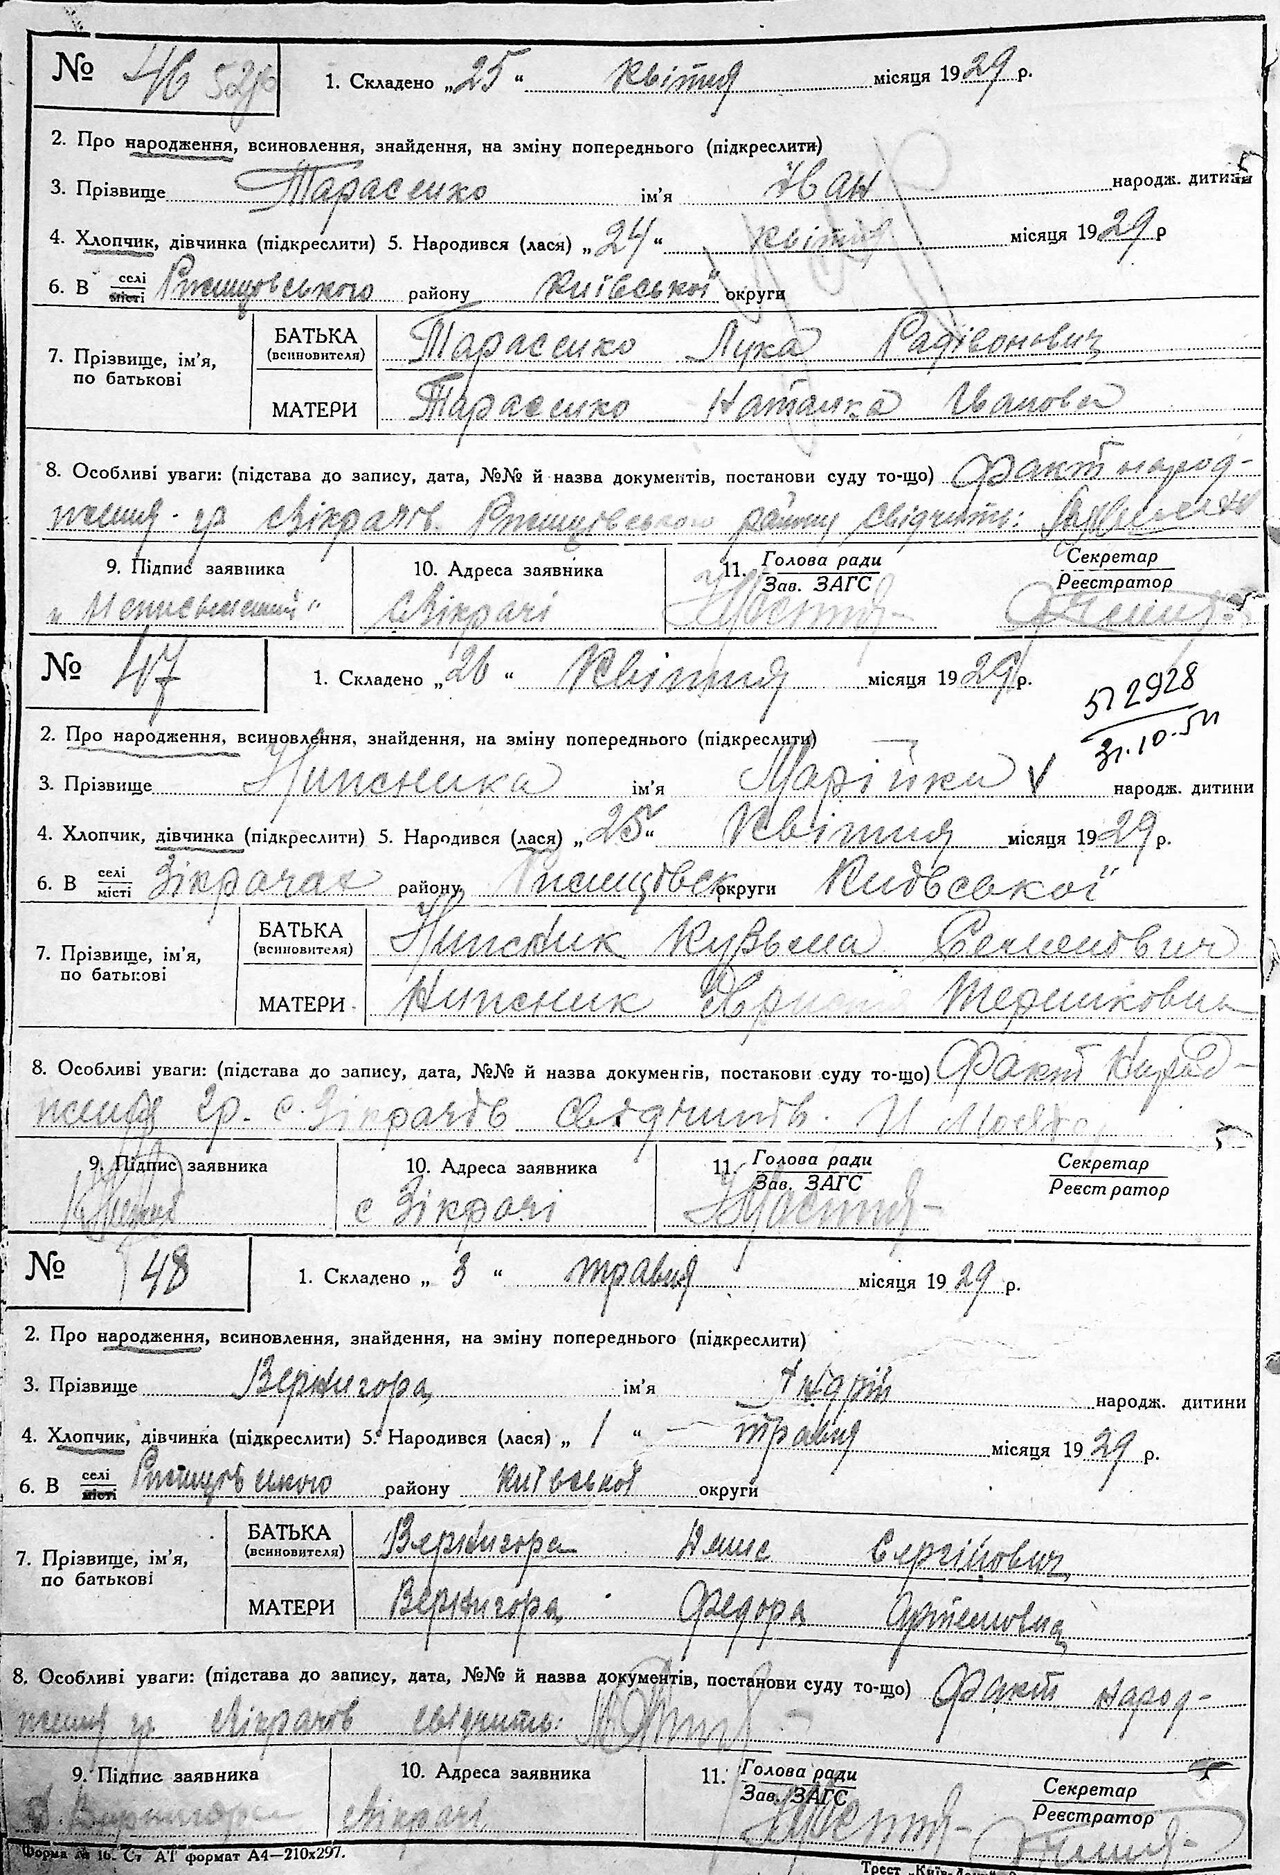 № 46
1. Складено „25“ квітня місяця 1929 р.
2. Про народження, всиновлення, знайдення, на зміну попереднього (підкреслити)
3. Прізвище Тарасенко ім'я Іван народж. дитини
4. Хлопчик, дівчинка (підкреслити) 5. Народився (лася) „24“ квітня місяця 1929 р
6. В селі місті Ржищівського району Київської округи
7. Прізвище, ім'я, по батькові
БАТЬКА (всиновителя) Тарасенко Лука Радівонович
МАТЕРИ Тарасенко Наталка Іванова
8. Особливі уваги: (підстава до запису, дата, №№ й назва документів, постанови суду то-що) Факт народ-
ження гр. с Зікрачів Ржищівського району свідчить:
9. Підпис заявника 10. Адреса заявника 11. Голова ради Зав. ЗАГС Секретар Реєстратор
„Неписьменний“ с Зікрачі
№ 47
1. Складено „26“ Квітня місяця 1929 р.
512928
31.10.51
2. Про народження, всиновлення, знайдення, на зміну попереднього (підкреслити)
3. Прізвище ім'я Марійка народж. дитини
4. Хлопчик, дівчинка (підкреслити) 5. Народився (лася) „25“ Квітня місяця 1929 р.
6. В селі місті Зікрачах району Ржищівськ округи Київської
7. Прізвище, ім'я, по батькові
БАТЬКА (всиновителя) Кузьма Семенович
МАТЕРИ
8. Особливі уваги: (підстава до запису, дата, №№ й назва документів, постанови суду то-що) Факт народ-
ження гр. с. Зікрачів свідчить.
9. Підпис заявника 10. Адреса заявника 11. Голова ради Зав. ЗАГС Секретар Реєстратор
с Зікрачі
№ 48
1. Складено „3“ травня місяця 1929 р.
2. Про народження, всиновлення, знайдення, на зміну попереднього (підкреслити)
3. Прізвище Вернигора ім'я Андрій народж. дитини
4. Хлопчик, дівчинка (підкреслити) 5. Народився (лася) „1“ травня місяця 1929 р.
6. В селі місті Ржищівського району Київської округи
7. Прізвище, ім'я, по батькові
БАТЬКА (всиновителя) Вернигора Сергійович
МАТЕРИ Вернигора Федора Артемовна
8. Особливі уваги: (підстава до запису, дата, №№ й назва документів, постанови суду то-що) Факт народ-
ження гр с Зікрачів свідчить:
9. Підпис заявника 10. Адреса заявника 11. Голова ради Зав. ЗАГС Секретар Реєстратор
Вернигора с Зікрачі
Форма № 16. Ст. АТ формат А4—210х297.